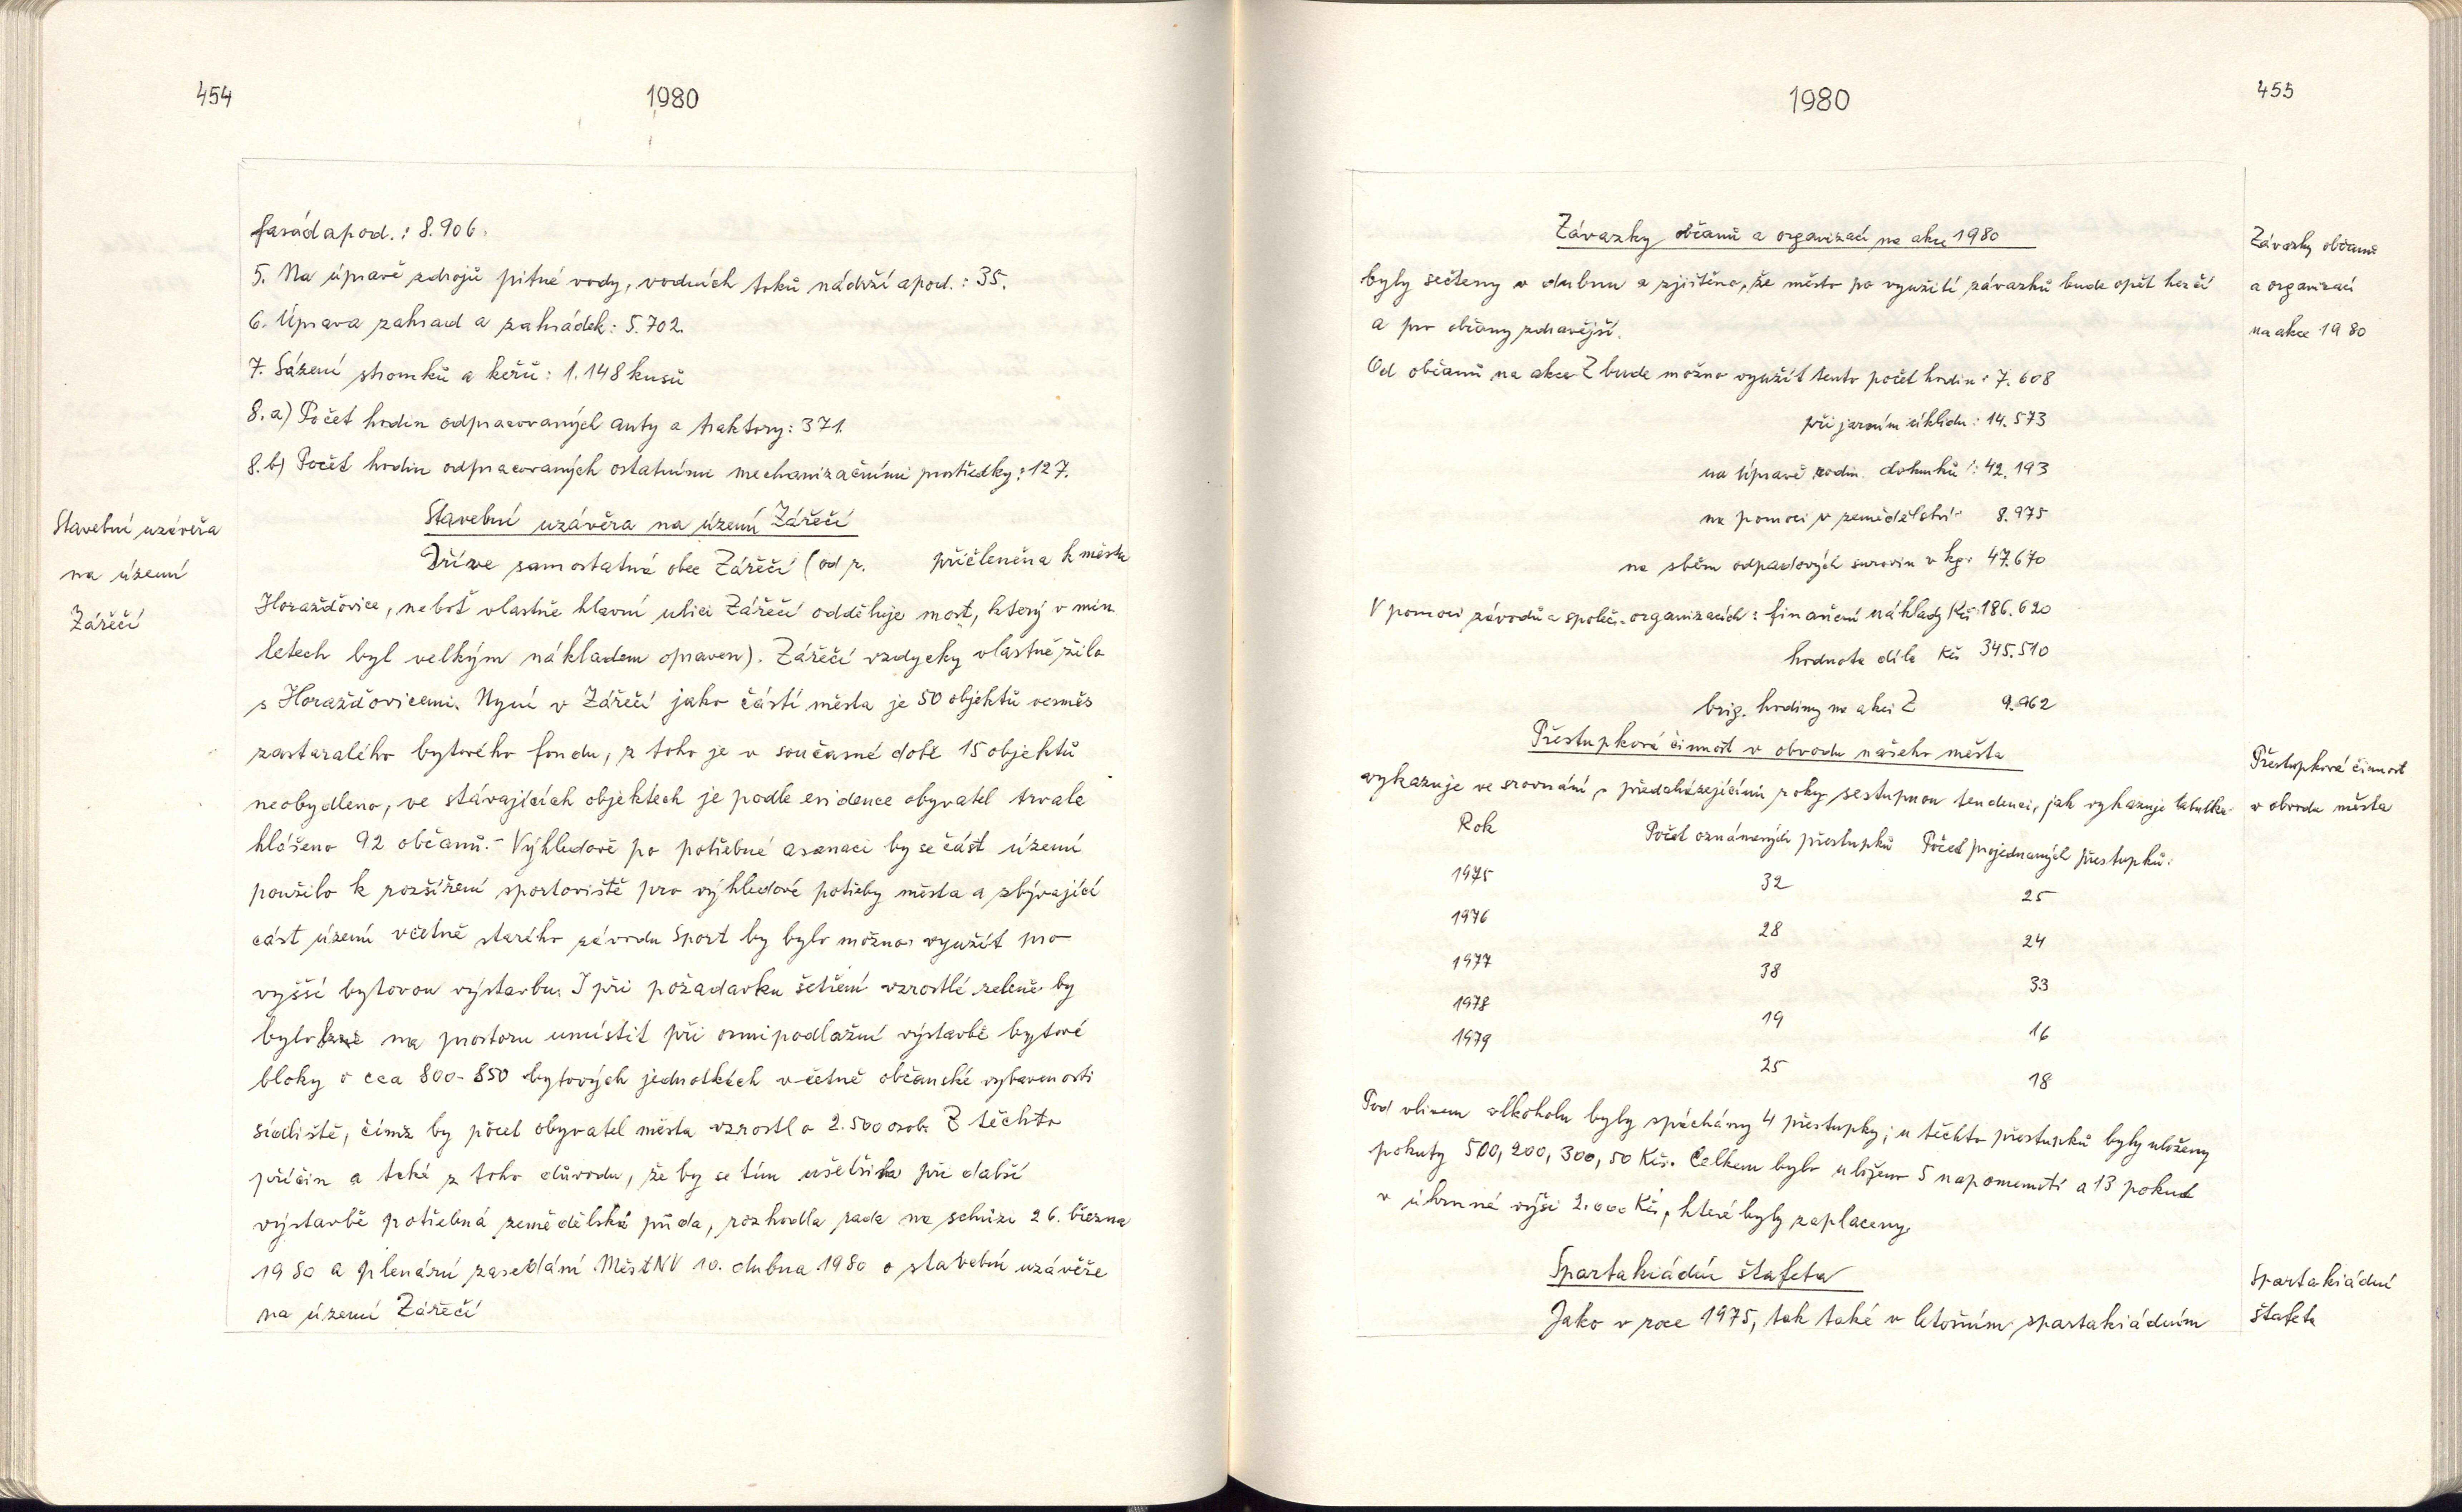 454
1980
fasád apod.: 8.906.
5. Na úpravě zdrojů pitné vody, vodních toků nádrží apod.: 35.
6. Úprava zahrad a zahrádek: 5.702.
7. Sázení stromků a keřů: 1.148 kusů
8.a) Počet hodin odpracovaných auty a traktory: 371.
8.b) Počet hodin odpracovaných ostatními mechanizačními prostředky: 127.
Stavební uzávěra
na území
Zářečí
Stavební uzávěra na území Zářečí
Dříve samostatná obec Zářečí (od r. přičleněna k městu
Horažďovice, neboť vlastně hlavní ulici Zářečí odděluje most, který v min.
letech byl velkým nákladem opraven). Zářečí vždycky vlastně žilo
s Horažďovicemi. Nyní v Zářečí jako části města je 50 objektů vesměs
zastaralého bytového fondu, z toho je v současné době 15 objektů
neobydleno, ve stávajících objektech je podle evidence obyvatel trvale
hlášeno 92 občanů.- Výhledově po potřebné asanaci by se část území
použilo k rozšíření sportoviště pro výhledové potřeby města a zbývající
část území včetně starého závodu Sport by bylo možno využít pro
vyšší bytovou výstavbu. I při požadavku šetření vzrostlé zeleně by
bylo na prostoru umístit při osmipodlažní výstavbě bytové
bloky o cca 800-850 bytových jednotkách včetně občanské vybavenosti
sídliště, čímž by počet obyvatel města vzrostl o 2.500 osob. Z těchto
příčin a také z toho důvodu, že by se tím ušetřila při další
výstavbě potřebná zemědělská půda, rozhodla rada na schůzi 26. března
1980 a plenární zasedání MěstNV 10. dubna 1980 o stavební uzávěře
na území Zářečí
1980
455
Závazky občanů a organizací na akce 1980
Závazky občanů
a organizací
na akce 1980
byly sečteny v dubnu a zjištěno, že město po využití závazků bude opět hezčí
a pro občany zdravější.
Od občanů na akce Z bude možno využít tento počet hodin: 7.608
při jarním úklidu: 14.573
na úpravě rodin. domků: 42.193
na pomoci v zemědělství: 8.975
na sběru odpadových surovin v kg: 47.670
V pomoci závodů a společ. organizacích: finanční náklady Kčs 186.620
hodnota díla Kčs 345.510
brig. hodiny na akci Z 9.962
Přestupková činnost v obvodu našeho města
Přestupková činnost
v obvodu města
vykazuje ve srovnání s předcházejícími roky sestupnou tendenci, jak vykazuje tabulka
Rok Počet oznámených přestupků Počet projednaných přestupků:
1975 32 25
1976 28 24
1977 38 33
1978 19 16
1979 25 18
Pod vlivem alkoholu byly spáchány 4 přestupky; u těchto přestupků byly uloženy
pokuty 500, 200, 300, 50 Kčs. Celkem bylo uloženo 5 napomenutí a 13 pokut
v úhrnné výši 2.000 Kčs, které byly zaplaceny.
Spartakiádní štafeta
Spartakiádní
štafeta
Jako v roce 1975, tak také v letošním spartakiádním